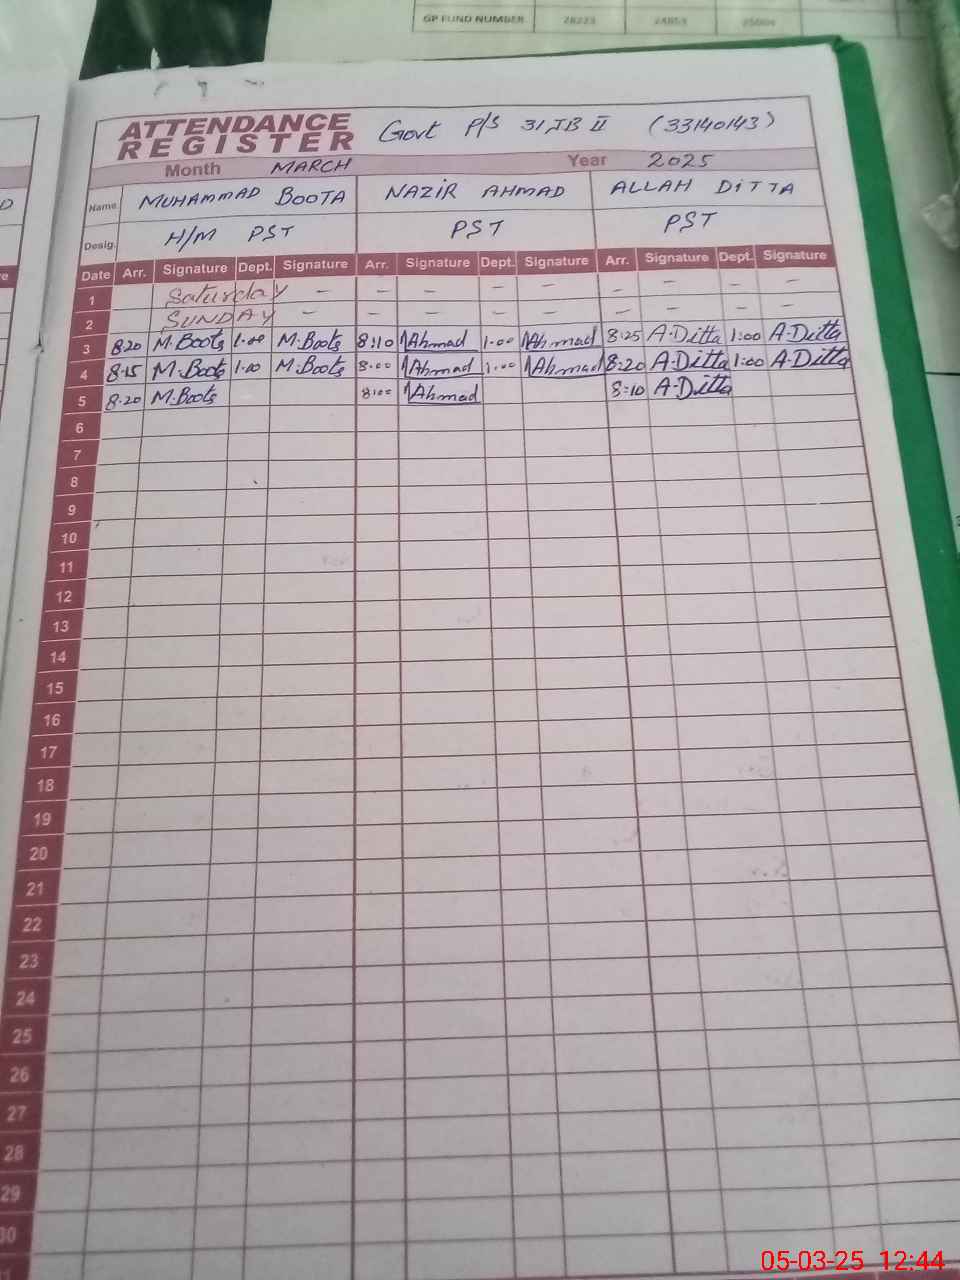 GP FUND NUMBER
ATTENDANCE REGISTER Govt P/S 31JB II (33140143)
Month MARCH Year 2025
Name MUHAMMAD BOOTA NAZIR AHMAD ALLAH DITTA
Desig. H/M PST PST PST
Date Arr. Signature Dept. Signature Arr. Signature Dept. Signature Arr. Signature Dept. Signature
1 Saturday - - - - - - - - -
2 SUNDAY - - - - - - - - -
3 8.20 M.Boota 1.00 M.Boota 8:10 NAhmad 1.00 NAhmad 8:25 A.Ditta 1:00 A.Ditta
4 8.15 M.Boota 1.00 M.Boota 8:00 NAhmad 1.00 NAhmad 8:20 A.Ditta 1:00 A.Ditta
5 8.20 M.Boota 8:00 NAhmad 8:10 A.Ditta
6
7
8
9
10
11
12
13
14
15
16
17
18
19
20
21
22
23
24
25
26
27
28
29
30
05-03-25 12:44